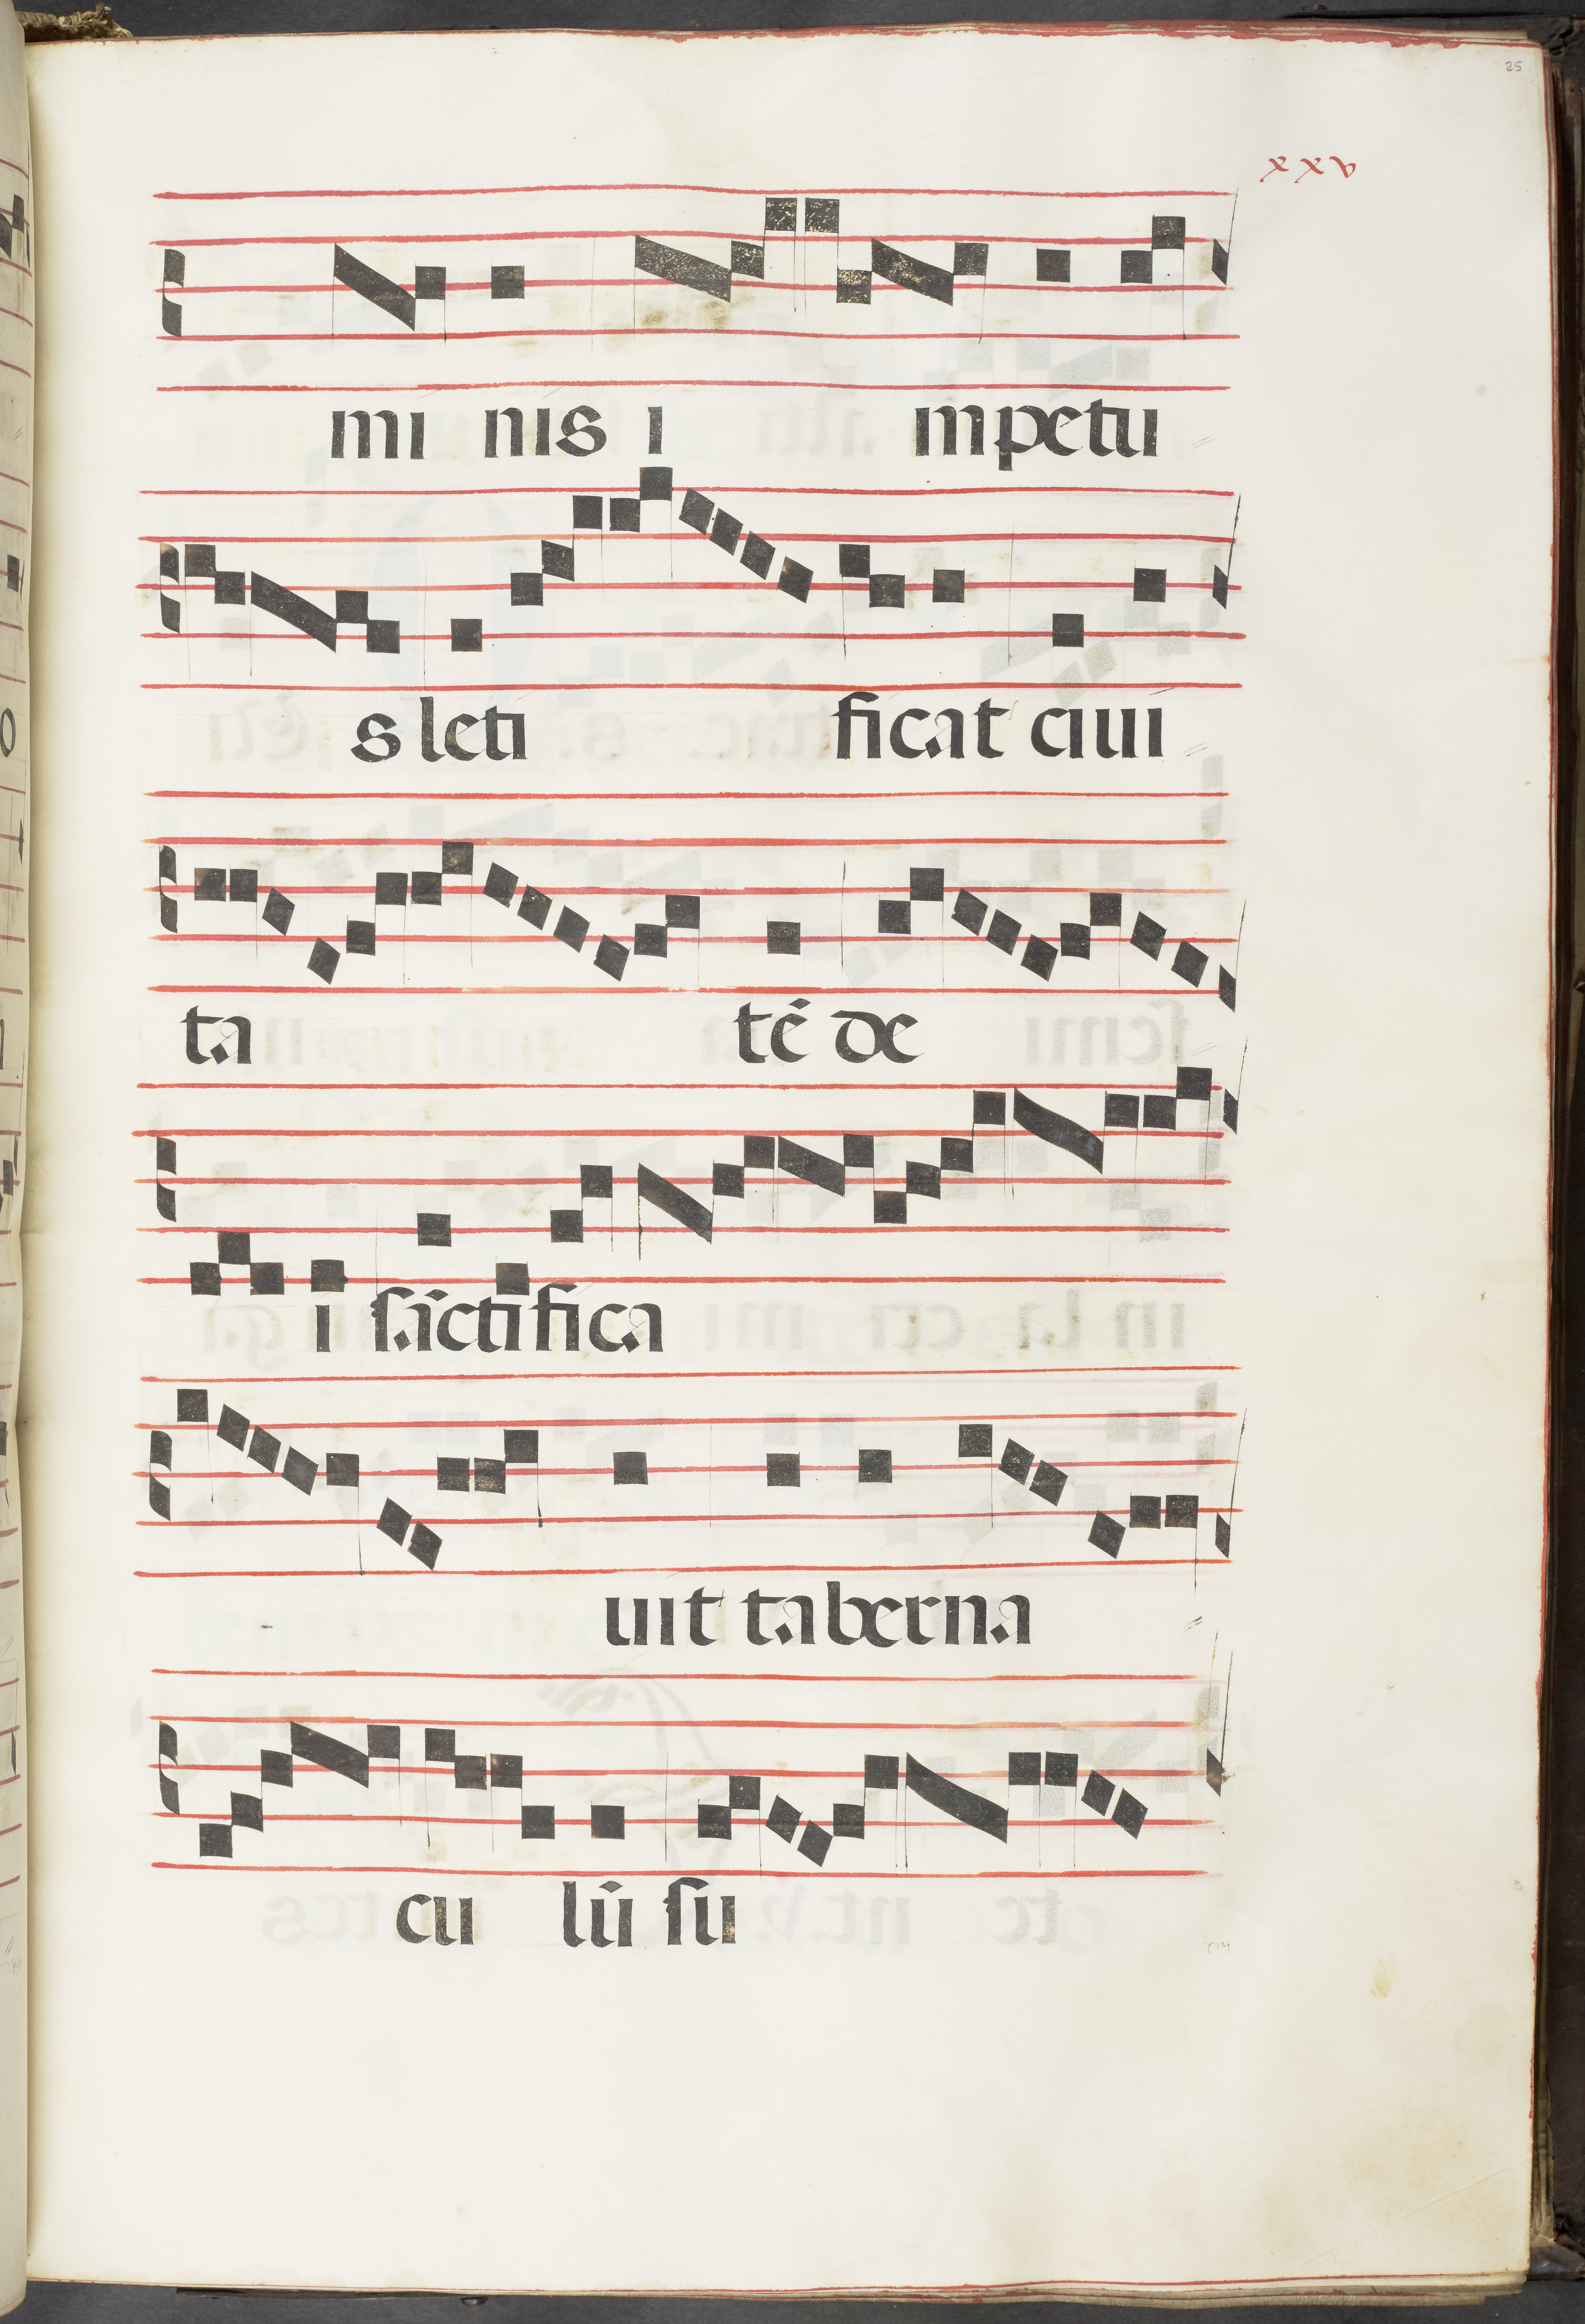 25
xxv
mi nis i mpetu
s leti ficat ciui
ta tē de
i sāctifica
uit taberna
cu lū su